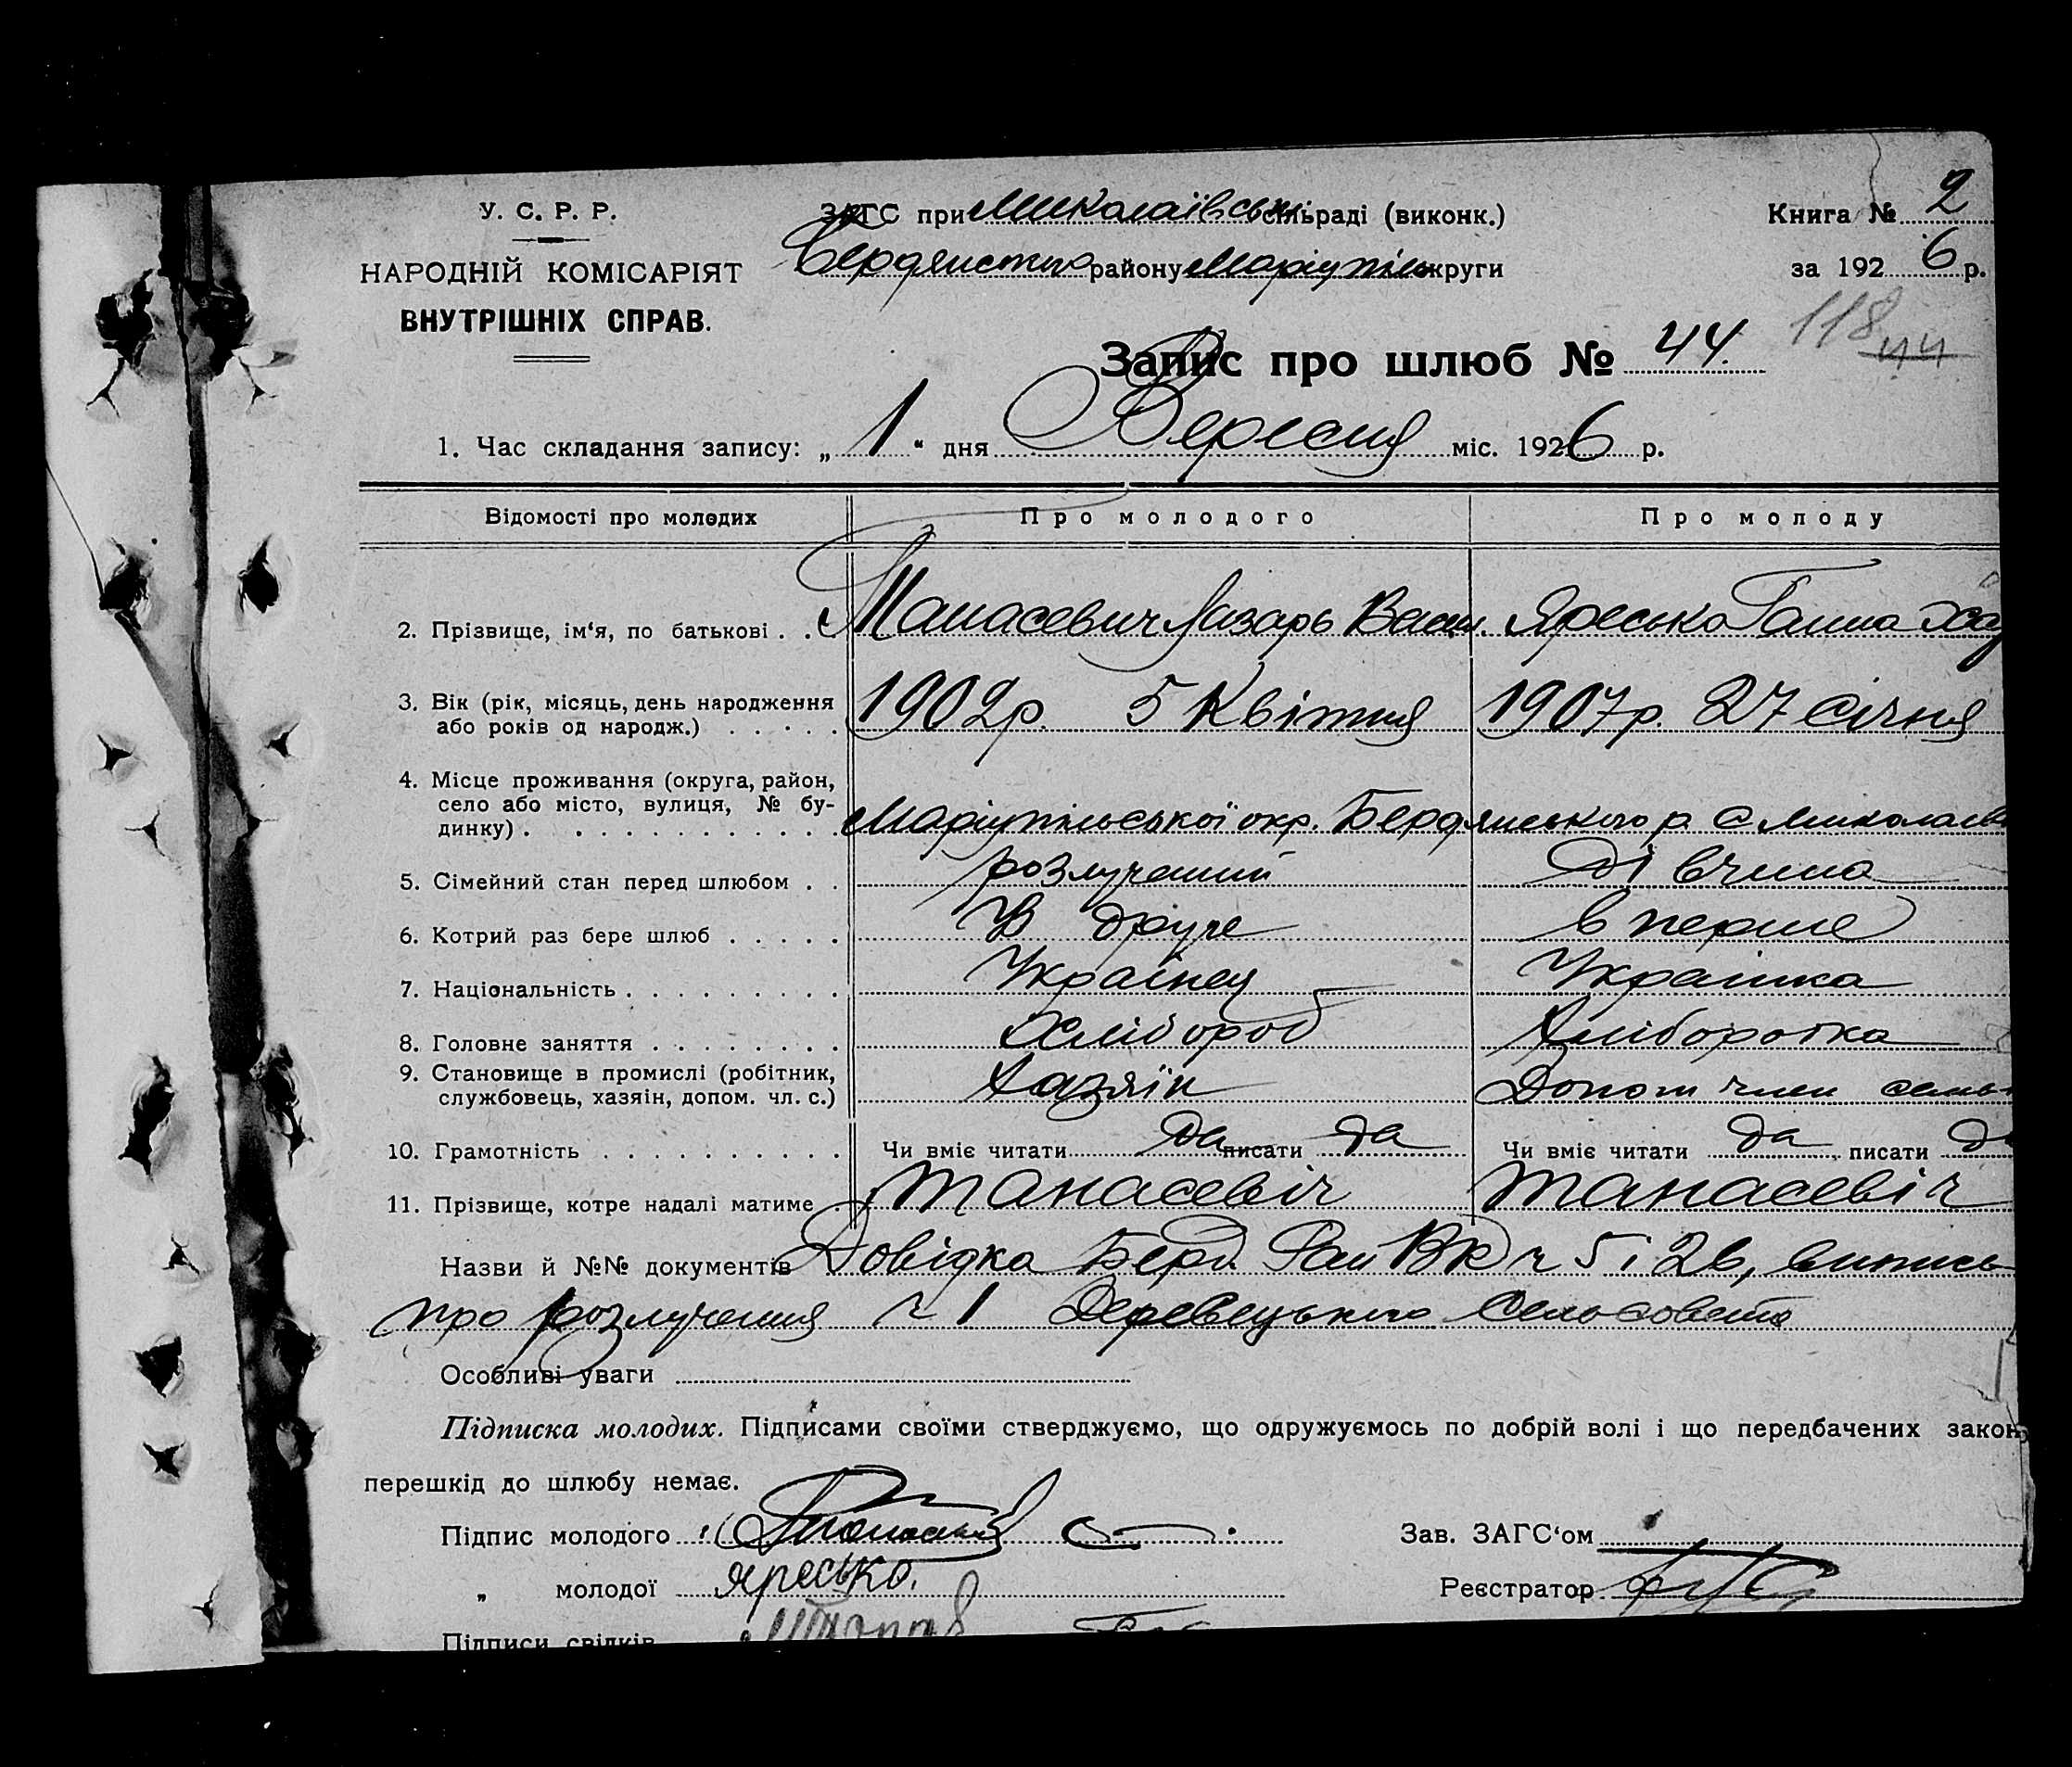 У. С. Р. Р.
НАРОДНІЙ КОМІСАРІЯТ
ВНУТРІШНІХ СПРАВ.
ЗАГС при Миколаївськ сільраді (виконк.)
Бердянського району Маріупіль округи
Книга № 2
за 1926 р.
118 44
Запис про шлюб № 44.
1. Час складання запису: „1“ дня Вересня міс. 1926 р.
Відомості про молодих Про молодого Про молоду
2. Прізвище, ім‘я, по батькові . . Танасевич Лазарь Васил. Яресько Ганна Ха
3. Вік (рік, місяць, день народження
або років од народж.) . . . . . 1902р. 5 Квітня 1907р. 27 січня
4. Місце проживання (округа, район,
село або місто, вулиця, № бу-
динку) . . . . . . . . . . . . Маріупільської окр. Бердянського р. с Миколаєв
5. Сімейний стан перед шлюбом . . розлучений дівчина
6. Котрий раз бере шлюб . . . . . В друге в перше
7. Національність . . . . . . . . . Українец Українка
8. Головне заняття . . . . . . . . Хлібороб Хлиборобка
9. Становище в промислі (робітник,
службовець, хазяін, допом. чл. с.) Хазяїн Допом член семь
10. Грамотність . . . . . . . . . . Чи вміє читати да писати да Чи вміє читати да писати да
11. Прізвище, котре надалі матиме . Танасевіч Танасевіч
Назви й №№ документів Довідка Берд. Рай ВК ч 5 і 26, випись
про розлучення ч 1 Деревецького сельсовета
Особливі уваги
Підписка молодих. Підписами своїми стверджуємо, що одружуємось по добрій волі і що передбачених закон
перешкід до шлюбу немає.
Підпис молодого
„ молодої Яресько.
Зав. ЗАГС‘ом
Реєстратор
Підписи свідків